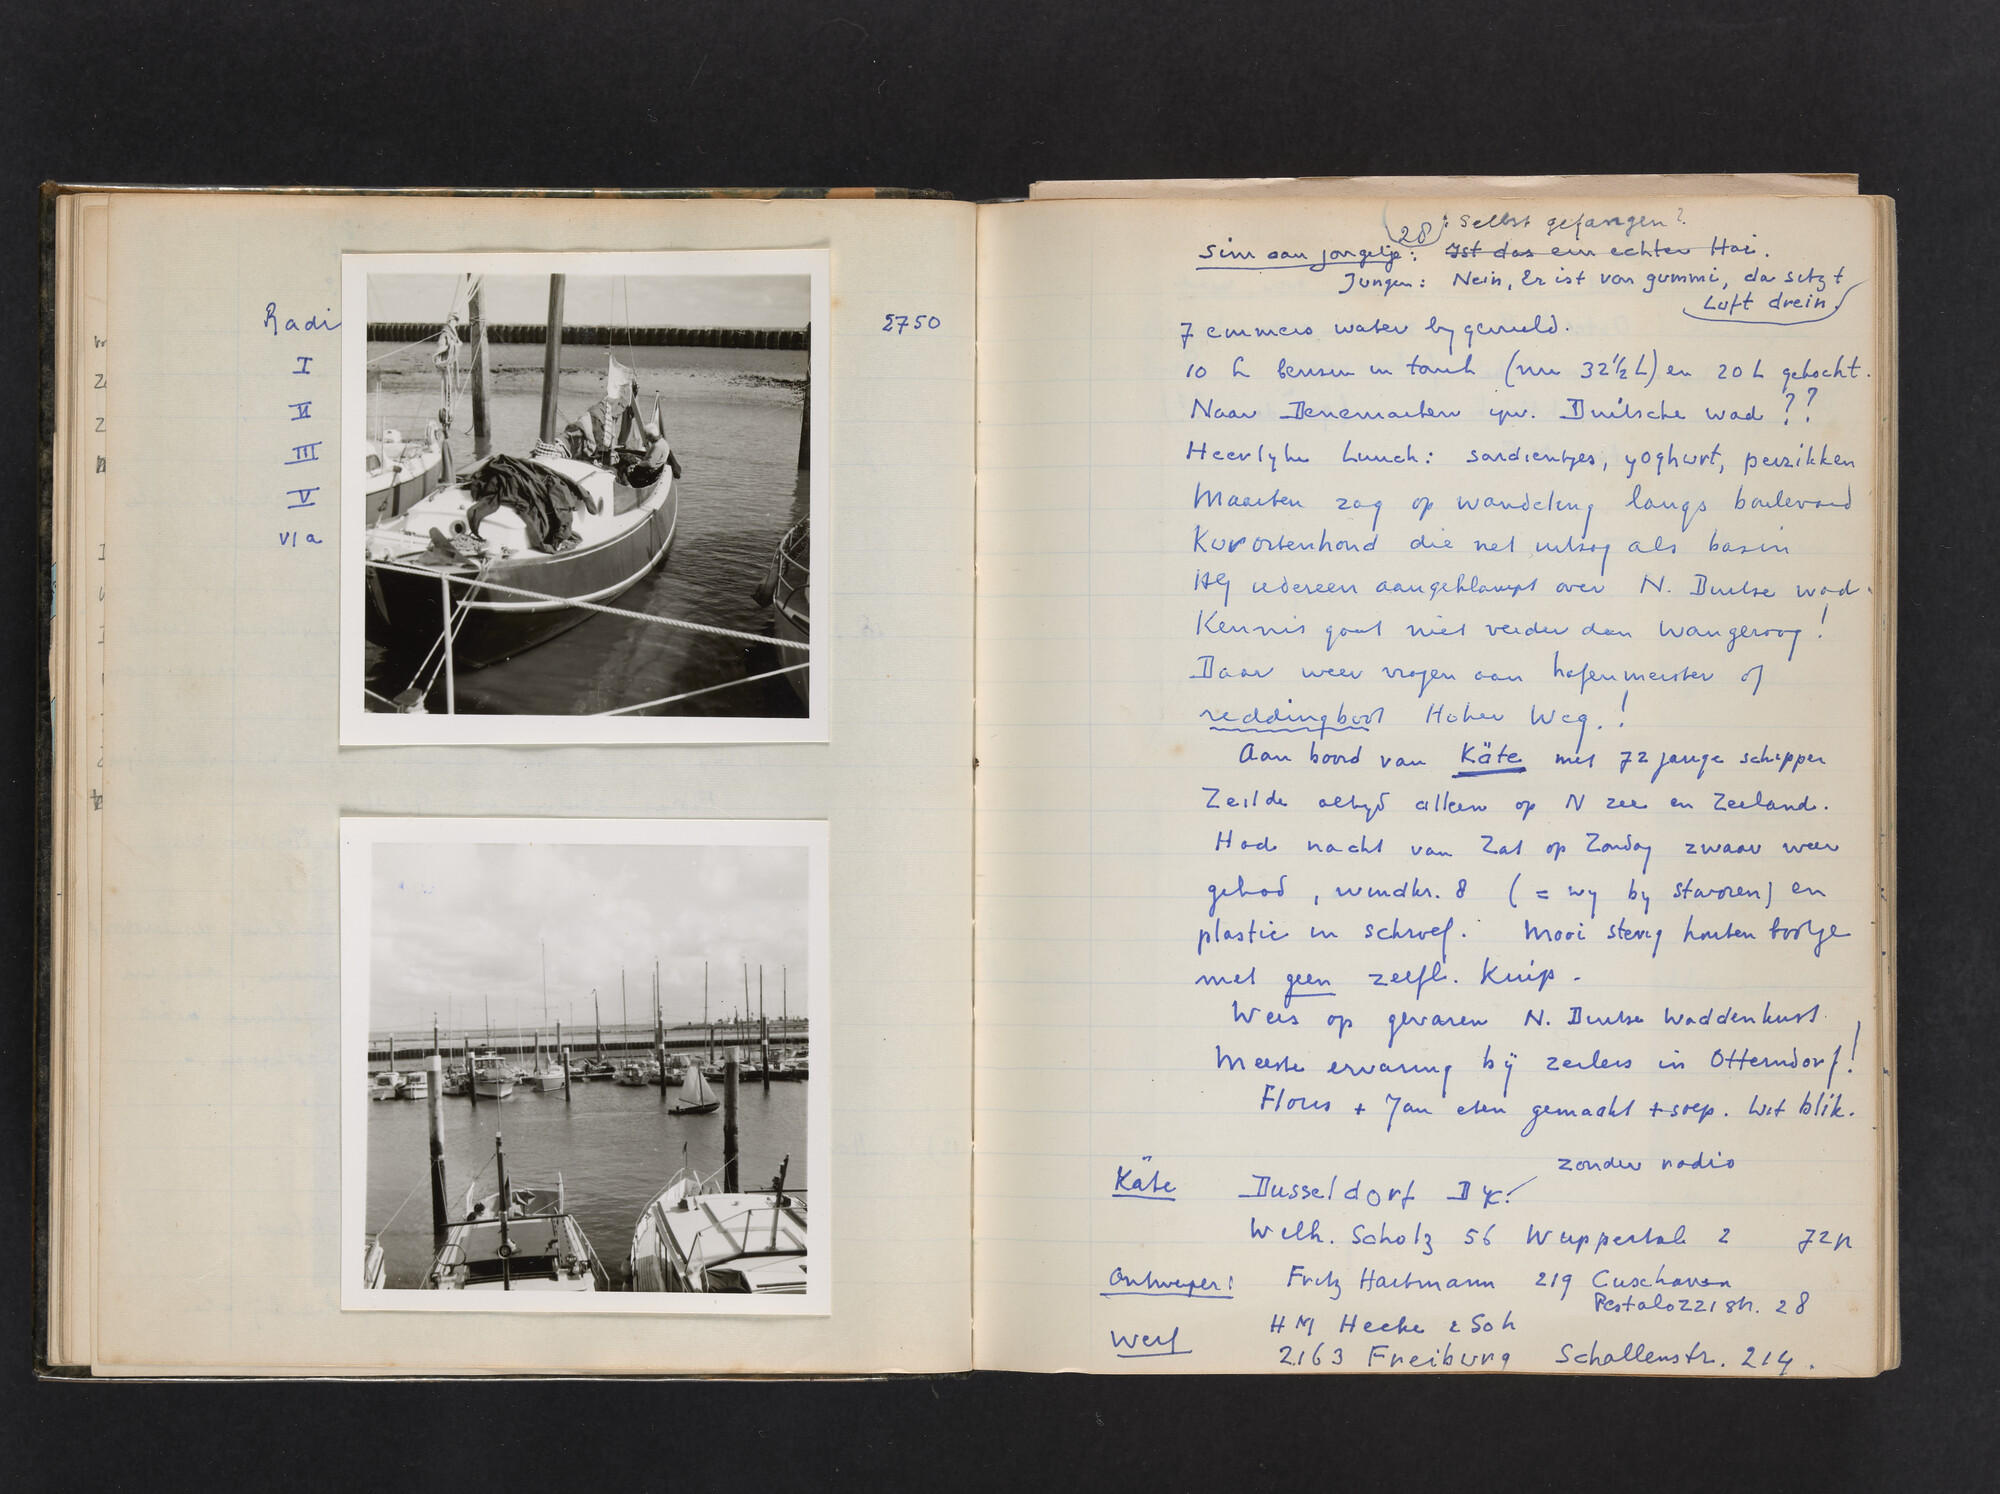 Radi
2750
I
II
III
V
VI a
28
: Selbst gefangen?
Sim aan jongetje: Ist das ein echter Hai.
Jungen: Nein, Er ist von gummi, da sitzt
Luft drein
7 emmers water bygevuld.
10 L benzin in tank (nu 32½ L) en 20 L gekocht.
Naar Denemarken ipv. Duitsche wad ??
Heerlyke Lunch: sardientjes, yoghurt, perzikken
Maarten zag op wandeling langs boulevard
Kurortenhond die net uitzag als bazin
Hy iedereen aangeklampt over N. Duitse wad.
Kennis gaat niet verder dan Wangeroog!
Daar weer vragen aan hafenmeister of
reddingboot Hoher Weg.!
Aan boord van Käte met 72 jarige schipper
Zeilde altyd alleen op N zee en Zeeland.
Had nacht van Zat op Zondag zwaar weer
gehad, windkr. 8 (= wy by Stavoren) en
plastic in schroef. Mooi stevig houten bootje
met geen zelfl. Kuip.
Wees op gevaren N. Duitse Waddenkust.
Meeste ervaring bij zeilers in Otterndorf!
Floris + Jan eten gemaakt + soep. Uit blik.
zonder radio
Käte Dusseldorf
Welh. Scholz 56 Wuppertal 2 72 jr
Ontwerper: Fritz Hartmann 219 Cuxhaven
Pestalozzi str. 28
HM Heeke & Soh
Werf 2163 Freiburg Schallenstr. 214.